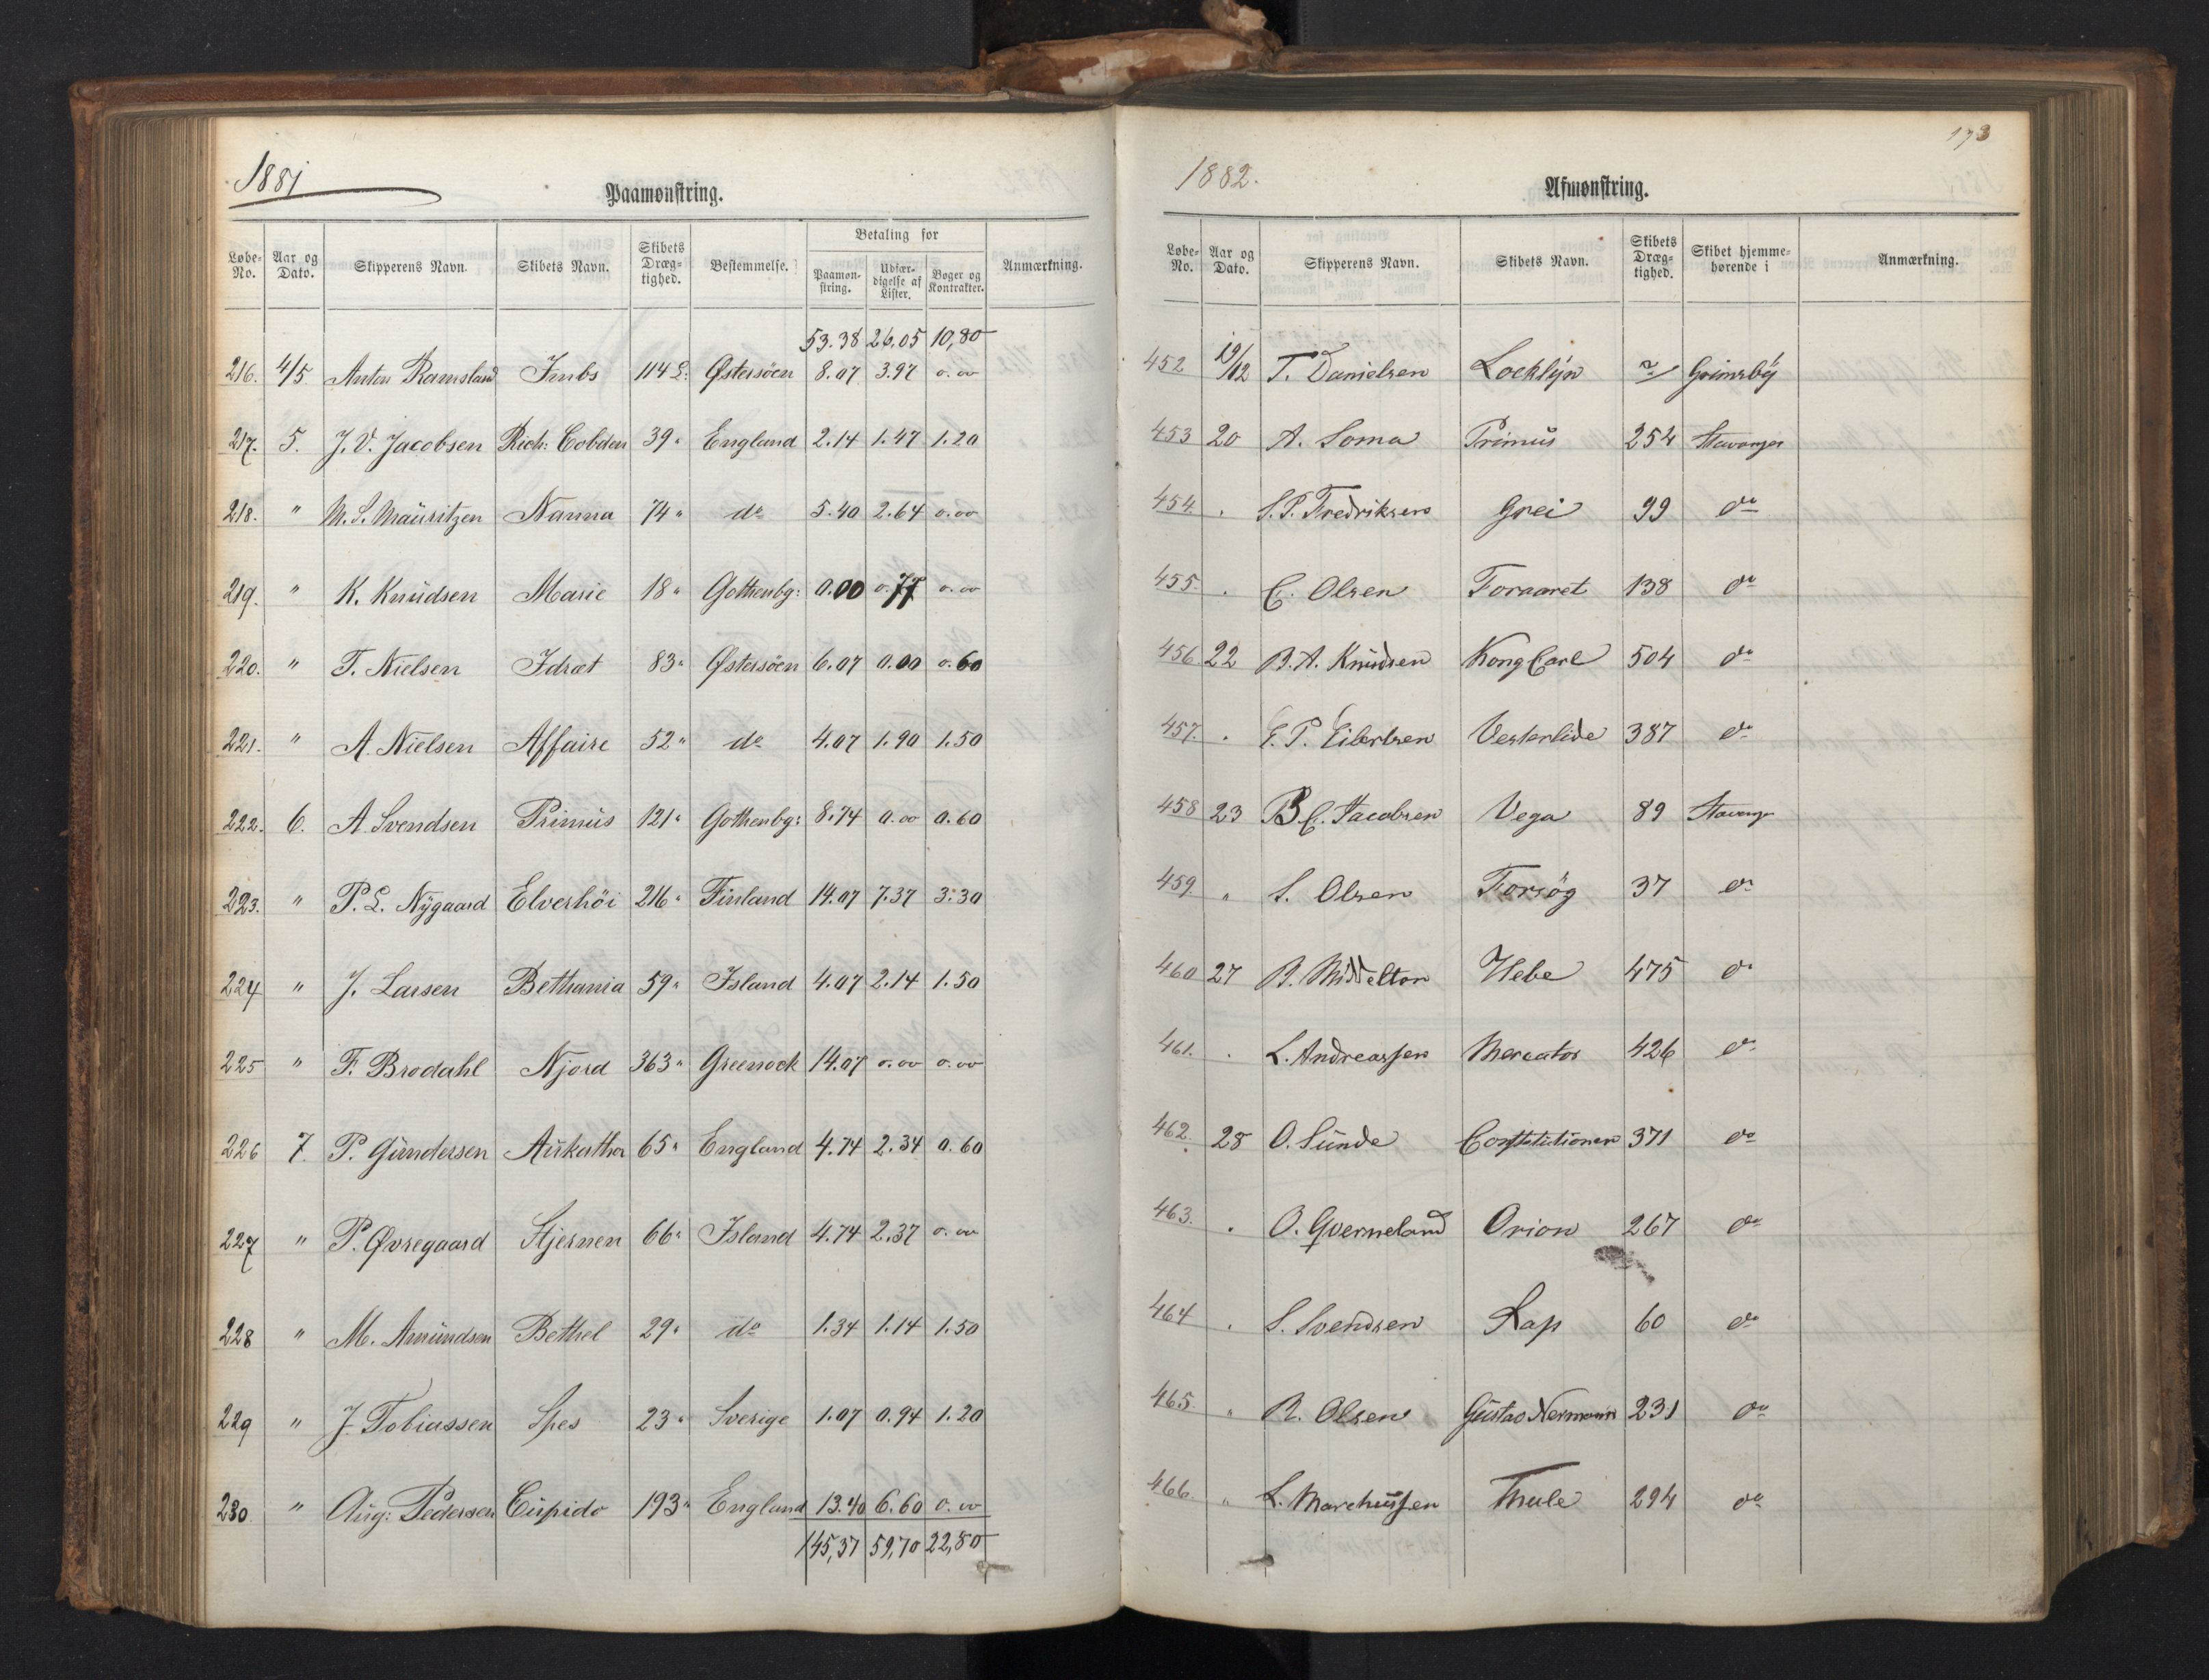 1881
Paamønstring.
Løbe-No. Aar og Dato. Skipperens Navn. Skibets Navn. Skibets Dræg-tighed. Bestemmelse. Betaling for Paamøn-string. Udfær-digelse af Lister. Bøger og Kontrakter. Anmærkning.
53.38 26.05 10,80
216. 4/5 Anton Ramsland Imbs 114 L. Østersöen 8.07 3.97 0.00
217. 5. J. V. Jacobsen Rich: Cobden 39 " England 2.14 1.47 1.20
218. " M. S. Mauritzen Nanna 74 " do 5.40 2.64 0.00
219. " K. Knudsen Marie 18 " Gothenbg: 0.00 0.77 0.00
220. " T. Nielsen Idræt 83 " Østersöen 6.07 0.00 0.60
221. " A. Nielsen Affaire 52 " do 4.07 1.90 1.50
222. 6. A. Svendsen Primus 121 " Gothenbg: 8.74 0.00 0.60
223. " P. L. Nygaard Elverhöi 216 " Finland 14.07 7.37 3.30
224 " J. Larsen Bethania 59 " Island 4.07 2.14 1.50
225 " F. Brodahl Njord 363 " Greenock 14.07 0.00 0.00
226 7. P. Gundersen Aukathor 65 " England 4.74 2.34 0.60
227 " P. Øvregaard Stjernen 66 " Island 4.74 2.37 0.00
228 " M. Amundsen Bethel 29 " do 1.34 1.14 1.50
229 " J. Tobiassen Spes 23 " Sverige 1.07 0.94 1.20
230 " Aug: Pedersen Cupido 193 " England 13.40 6.60 0.00
145,37 59,70 22,80
173
1882.
Afmønstring.
Løbe-No. Aar og Dato. Skipperens Navn. Skibets Navn. Skibets Dræg-tighed. Skibet hjemme-hørende i Anmærkning.
452 19/12 T. Danielsen Locklyn Grimsby
453 20 A. Soma Primus 254 Stavanger
454 . S. P. Fredriksen Grei 99 do
455. . C. Olsen Foraaret 138 do
456 22 B. A. Knudsen Kong Carl 504 do
457. . E. P. Eilertsen Vesterlide 387 do
458 23 B C. Jacobsen Vega 89 Stavanger
459. " S. Olsen Forsög 37 do
460 27 B. Middelton Hebe 475 do
461. . L. Andreassen Mercator 426 do
462. 28 O. Sunde Constitutionen 371 do
463. . O. Qverneland Orion 267 do
464 . S. Svendsen Rap 60 do
465. " R. Olsen Gustav Hermann 231 do
466. " L. Marchussen Thule 294 do